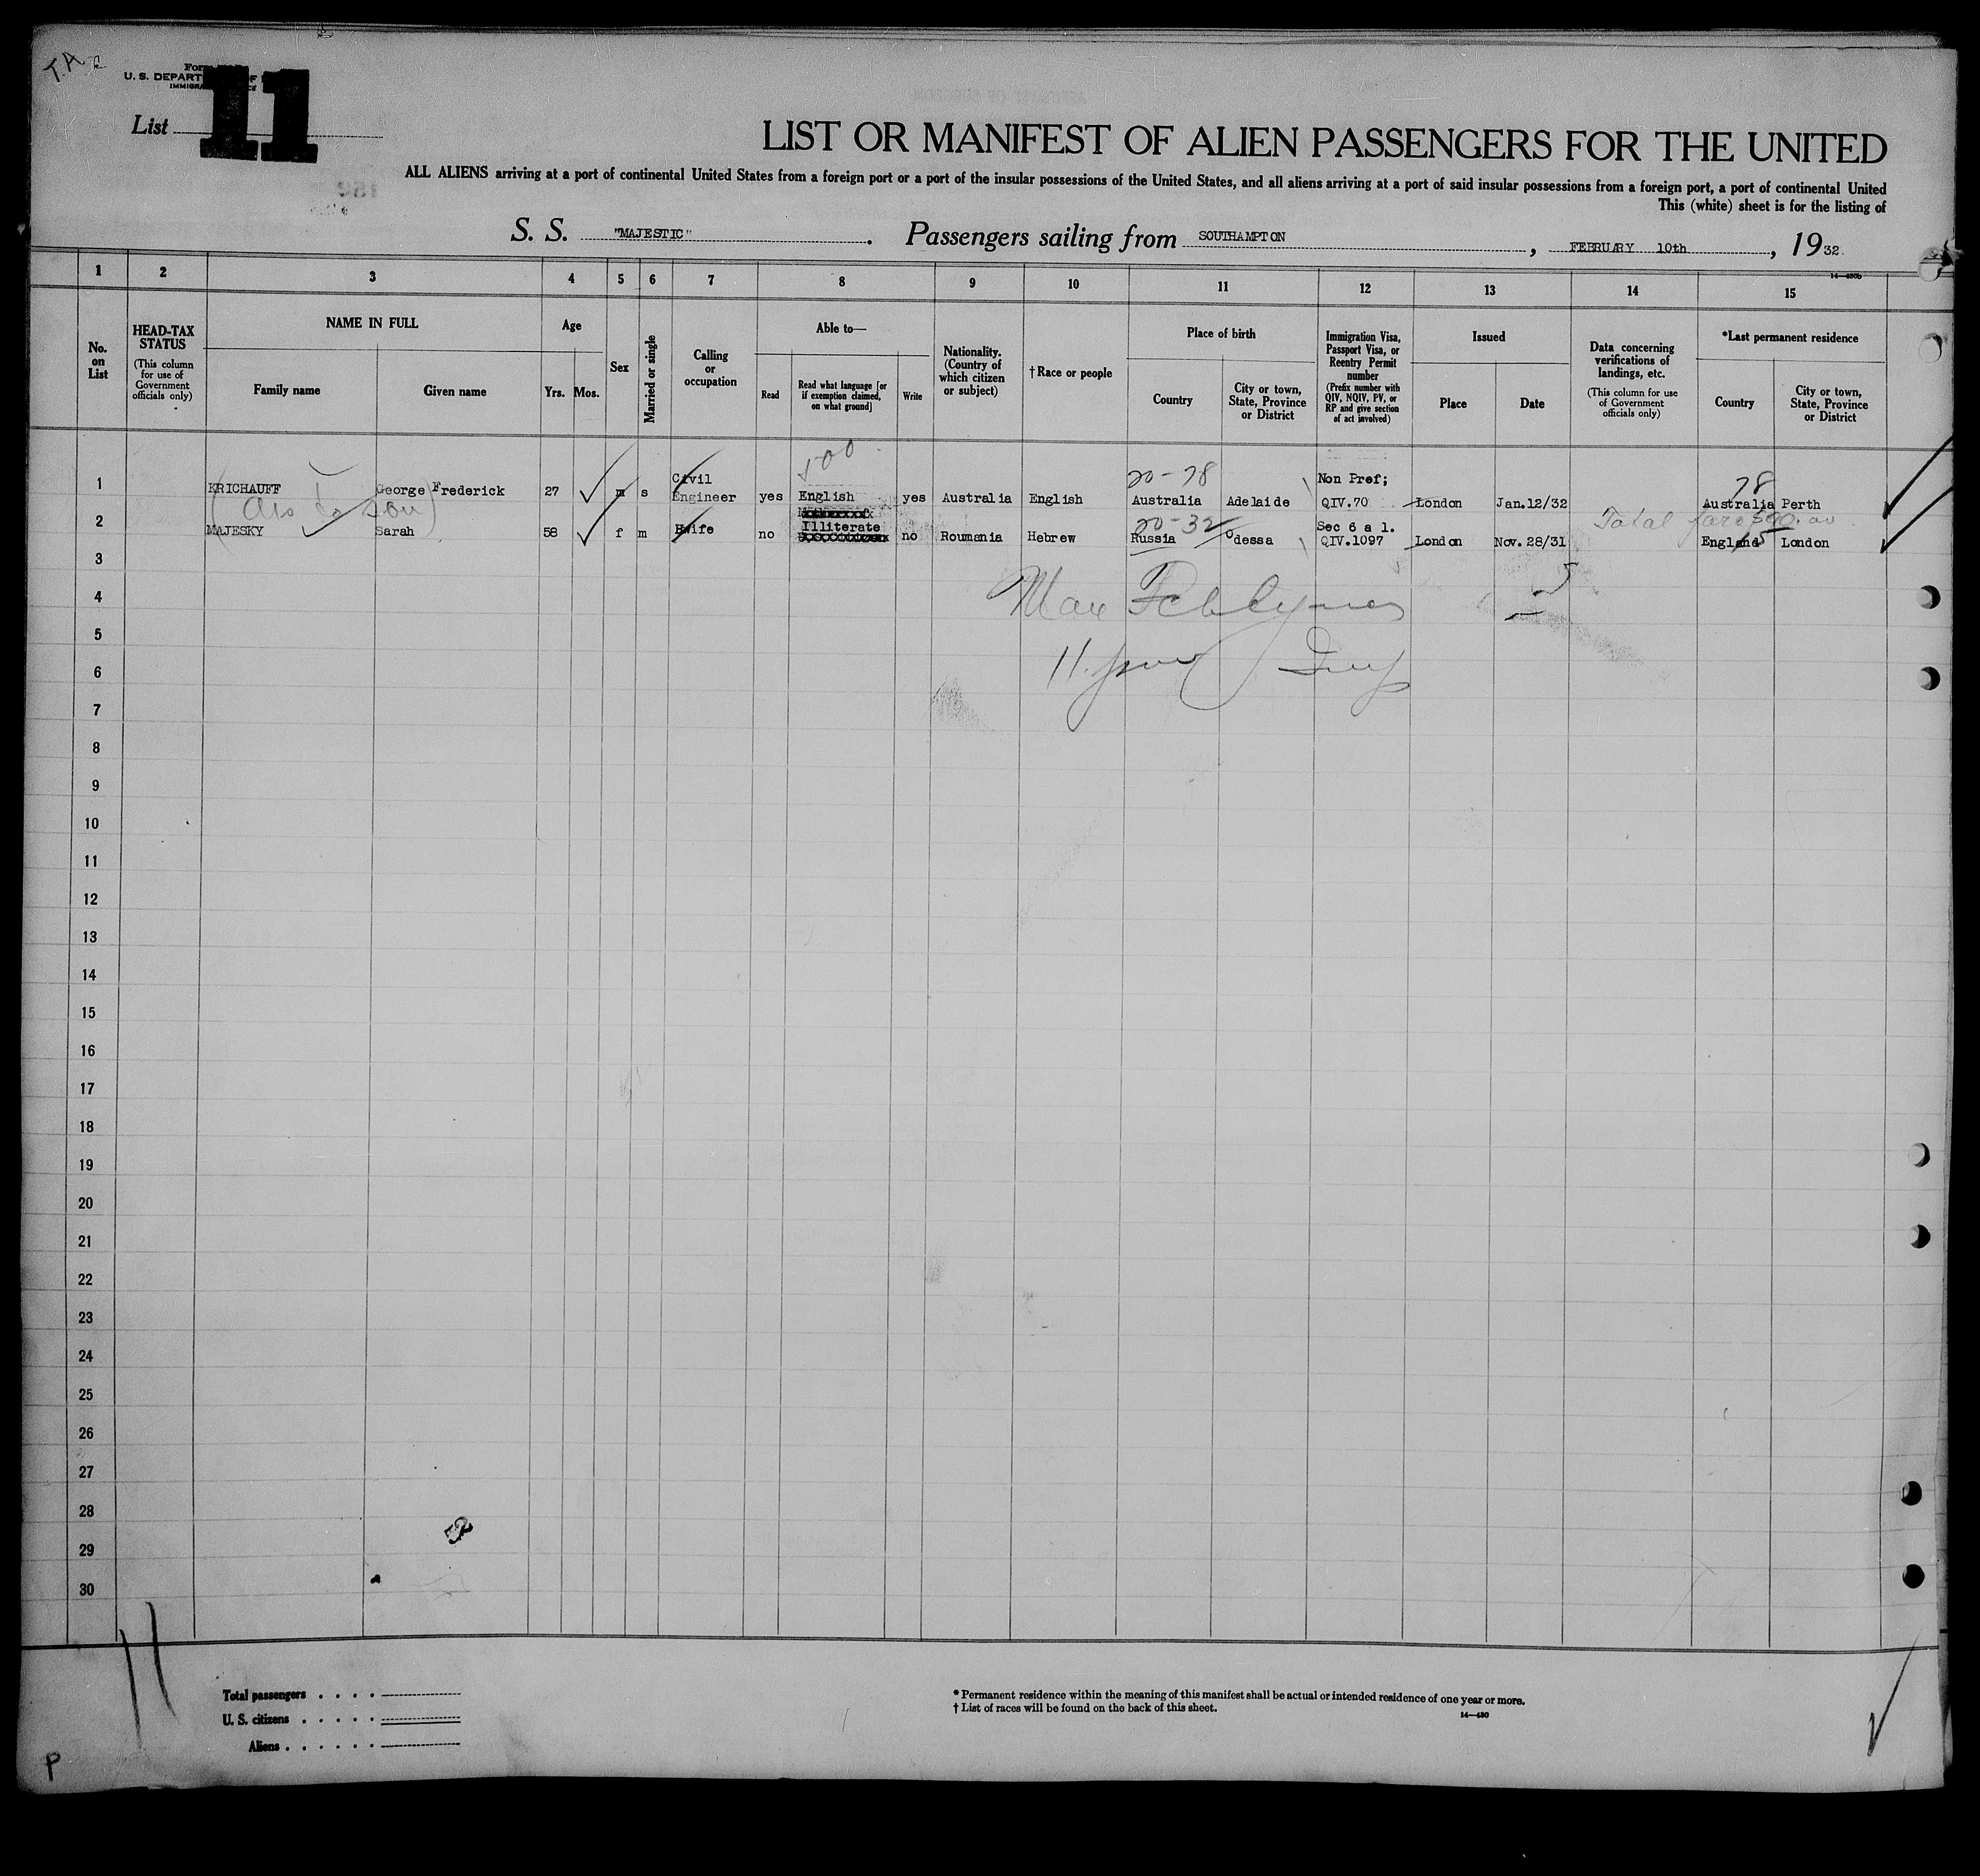 T.A
U. S. DEPART OF
List 11
LIST OR MANIFEST OF ALIEN PASSENGERS FOR THE UNITED
ALL ALIENS arriving at a port of continental United States from a foreign port or a port of the insular possessions of the United States, and all aliens arriving at a port of said insular possessions from a foreign port, a port of continental United
This (white) sheet is for the listing of
S. S. "MAJESTIC". Passengers sailing from SOUTHAMPTON, FEBRUARY 10th, 1932.
14—430b
1 2 3 4 5 6 7 8 9 10 11 12 13 14 15
No. on List
HEAD-TAX STATUS (This column for use of Government officials only)
NAME IN FULL
Family name Given name
Age
Yrs. Mos.
Sex
Married or single
Calling or occupation
Able to—
Read Read what language [or if exemption claimed, on what ground] Write
Nationality. (Country of which citizen or subject)
† Race or people
Place of birth
Country City or town, State, Province or District
Immigration Visa, Passport Visa, or Reentry Permit number (Prefix number with QIV, NQIV, PV, or RP and give section of act involved)
Issued
Place Date
Data concerning verifications of landings, etc. (This column for use of Government officials only)
*Last permanent residence
Country City or town, State, Province or District
500
20-78
78
1 KRICHAUFF George Frederick 27 m s Civil Engineer yes English yes Australia English Australia Adelaide Non Pref; QIV.70 London Jan.12/32 Australia Perth
son
Total fare
20-32
15
2 MAJESKY Sarah 58 f m Hwife no Illiterate no Roumania Hebrew Russia Odessa Sec 6 a 1. QIV.1097 London Nov.28/31 England London
3
4
5
6
7
8
9
10
11
12
13
14
15
16
17
18
19
20
21
22
23
24
25
26
27
28
29
30
11
Total passengers . . . .
U. S. citizens . . . . .
Aliens . . . . . .
* Permanent residence within the meaning of this manifest shall be actual or intended residence of one year or more.
† List of races will be found on the back of this sheet.
14—430
P